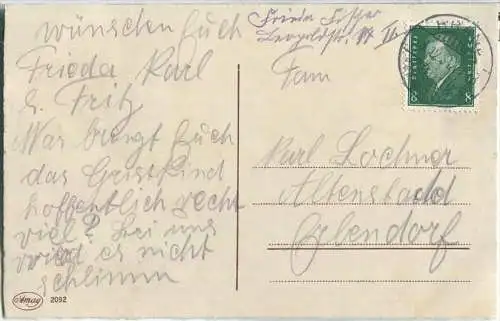 wünschen Euch
Frieda, Karl
& Fritz
Was bringt Euch
das Christkind
hoffentlich recht
viel? Bei uns
wird es nicht
schlimm
Amag 2092
Frieda Fischer
Leopoldstr.
Fam
Karl Lochner
Altenstadt
Erbendorf
8 8